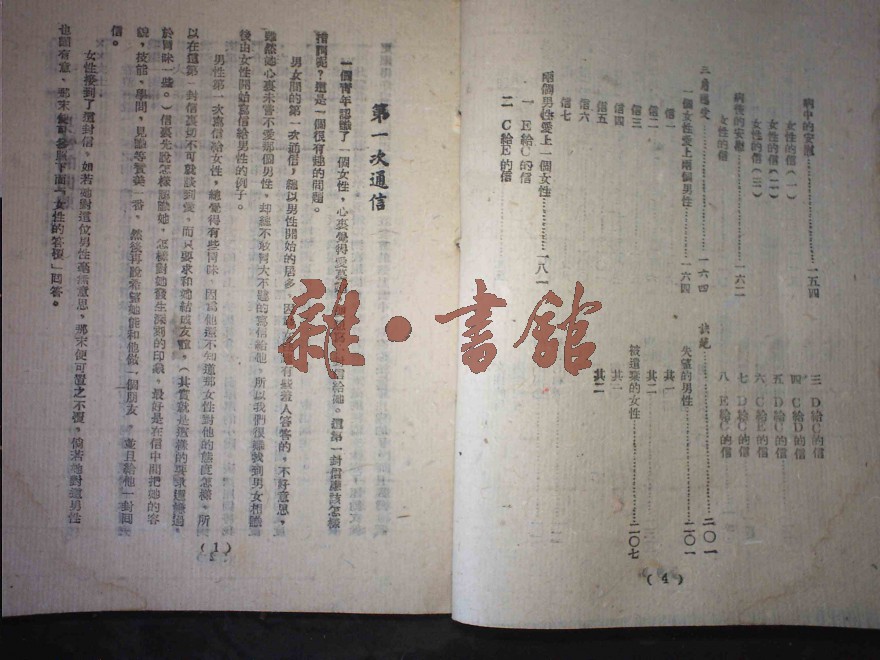 病中的安慰……一五四
女性的信(一)
女性的信(二)
女性的信(三)
病後的安慰……一六二
女性的信
三角戀愛……一六四
一個女性愛上兩個男性……一六四
信一
信二
信三
信四
信五
信六
信七
兩個男性愛上一個女性……一八一
一 E給C的信
二 C給E的信
三 D給C的信
四 C給D的信
五 D給C的信
六 C給E的信
七 D給C的信
八 E給C的信
訣絕……二〇一
失望的男性……二〇一
其一
其二
被遺棄的女性……二〇七
其一
其二
(4)
第一次通信
一個青年認識了一個女性,心裏覺得愛慕
封信給她。這第一封信應該怎樣
措詞呢?這是一個很有趣的問題。
男女間的第一次通信,總以男性開始的居多,因
有些羞人答答的,不好意思,
雖然她心裏未嘗不愛那個男性,却總不敢冒大不韙的寫信給他,所以我們很難找到男女相識
後由女性開始寫信給男性的例子。
男性第一次寫信給女性,總覺得有些冒昧,因爲他還不知道那女性對他的態度怎樣,所
以在這第一封信裏切不可就談到愛,而只要求和她結成友誼,(其實就是這樣的要求還嫌過
於冒昧一些。)信裏先說怎樣認識她,怎樣對她發生深刻的印象,最好是在信中間把她的容
貌,技能,學問,見識等贊美一番,然後再說希望她能和他做一個朋友,並且給他一封回
信。
女性接到了這封信,如若她對這位男性毫無意思,那末便可置之不復,倘若她對這男性
也頗有意,那末便可參照下面「女性的答復」回答。
(1)
雜·書館